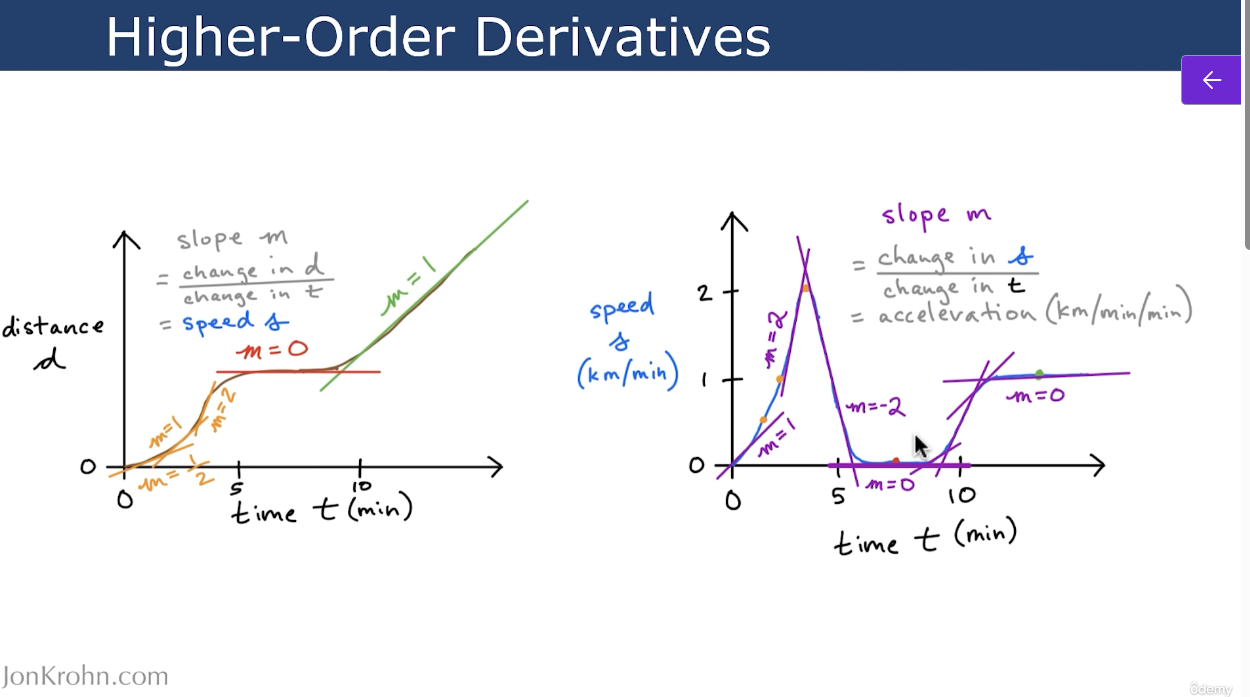 Higher-Order Derivatives
slope m
= change in d
change in t
= speed s
distance
d
m = 0
m = 1
m=1
m=2
m = 1
2
0
0
5
10
time t (min)
slope m
= change in s
change in t
= acceleration (km/min/min)
speed
s
(km/min)
2
1
0
m=2
m=1
m=-2
m=0
m=0
0
5
10
time t (min)
JonKrohn.com
ûdemy